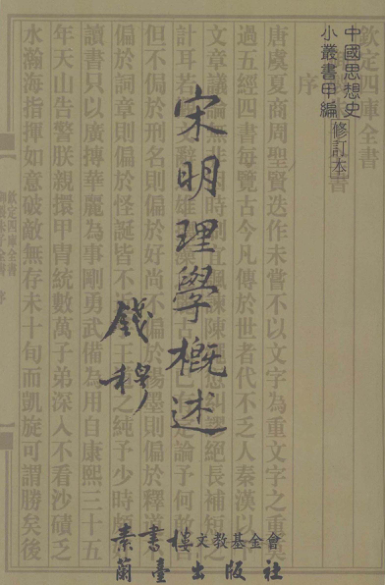 中國思想史
小叢書甲編
修訂本
宋明理學概述
錢穆
素書樓文教基金會
蘭臺出版社
欽定四庫全書
序
唐虞夏商周聖賢迭作未嘗不以文字為重文字之重
過五經四書每覽古今凡傳於世者代不乏人秦漢以
文章議論
計耳若
但不局於刑名則偏於好尚不偏於楊墨則偏於釋道
偏於詞章則偏於怪誕皆不
之純予少時
讀書只以廣博華麗為事剛勇武備為用自康熙三十五
年天山告警朕親擐甲胄統數萬子弟深入不毛沙磧乏
水瀚海指揮如意破敵無存未十旬而凱旋可謂勝矣後
欽定四庫全書